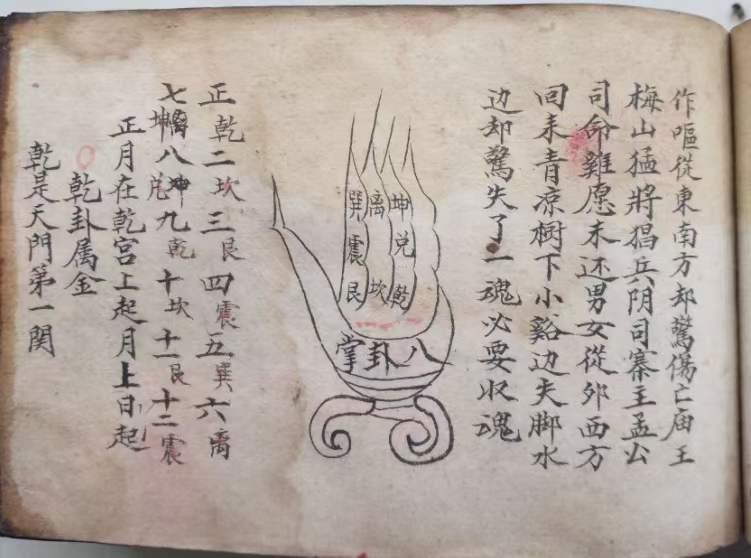 作嘔從東南方却驚傷亡庙王
梅山猛將猖兵阴司寨王孟公
司命雞愿未还男女從外西方
回来青凉樹下小谿边失脚水
边却驚失了一魂必要収魂
坤兑乾
離坎
巽震艮
八卦掌
正乾二坎三艮四震五巽六离
七坤八兑九乾十坎十一艮十二震
正月在乾宫上起月上日起
乾卦属金
乾是天門第一関